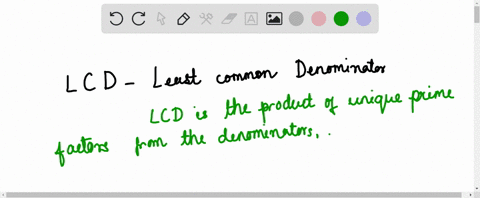 LCD - Least common Denominator
LCD is the product of unique prime
factors from the denominators,.